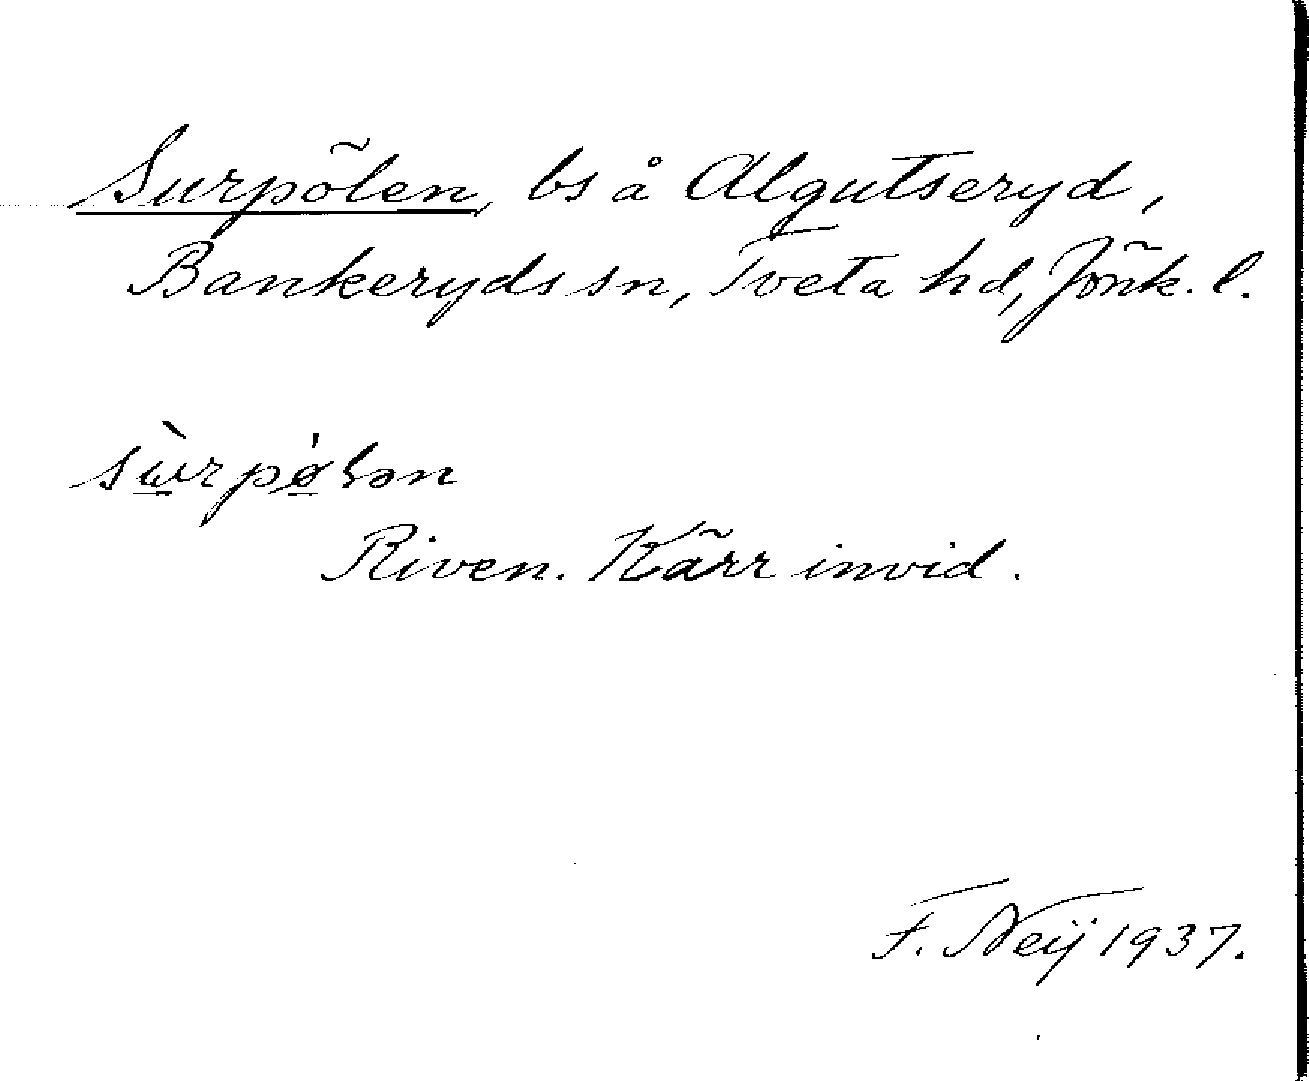 Surpölen, bs å Algutseryd,
Bankeryds sn, Tveta hd, Jönk. l.
Riven. Kärr invid.
F. Neij 1937.